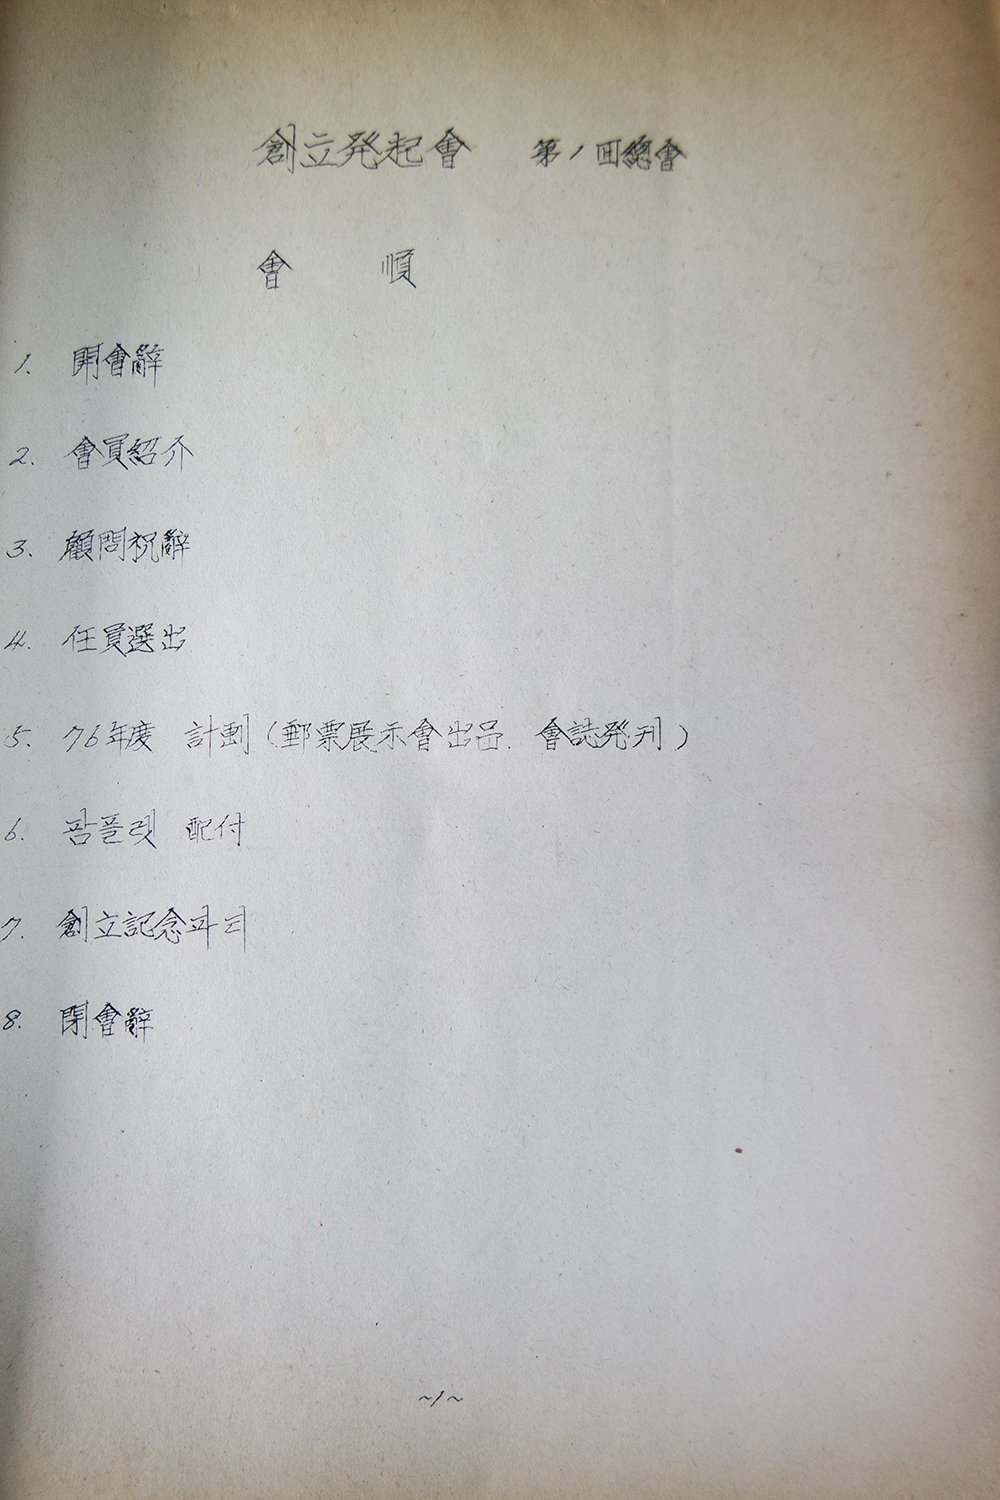 創立発起會 第1回總會
會 順
1. 開會辭
2. 會員紹介
3. 顧問祝辭
4. 任員選出
5. 76年度 計劃 (郵票展示會出品. 會誌発刊)
6. 팜플렛 配付
7. 創立記念파티
8. 閉會辭
~1~